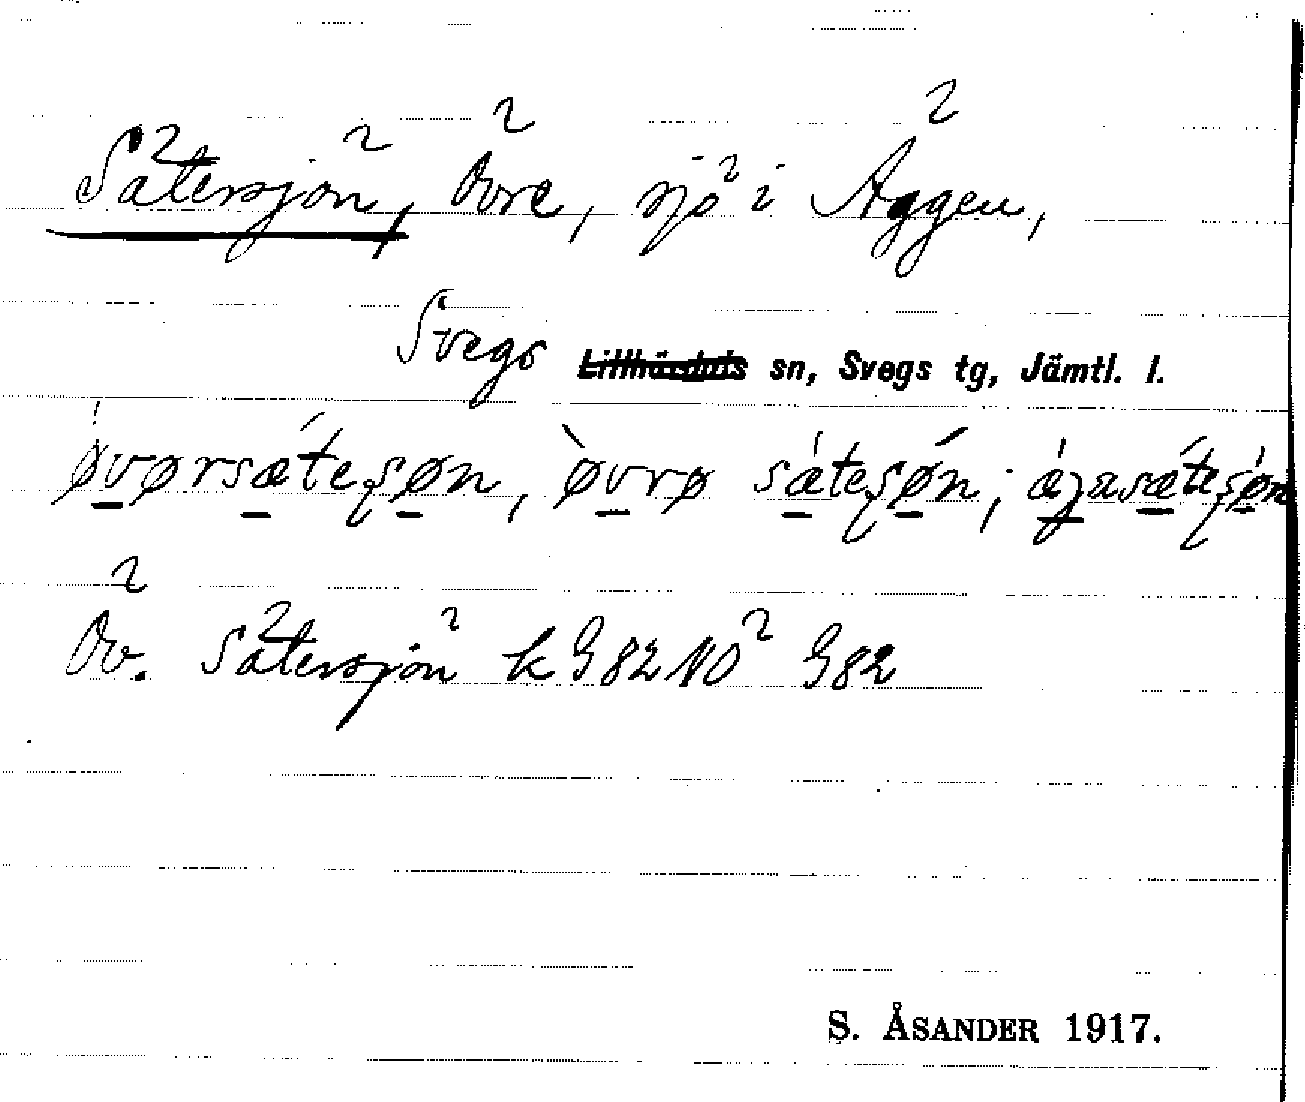 Sätersjön, Övre, sjö i Äggen,
Svegs ~~Lillhärdals~~ sn, Svegs tg, Jämtl. l.
øvørsæteʂøn, øvrø sæteʂøn; ægasæteʂøn
Öv. Sätersjön k G82NO G82
S. ÅSANDER 1917.